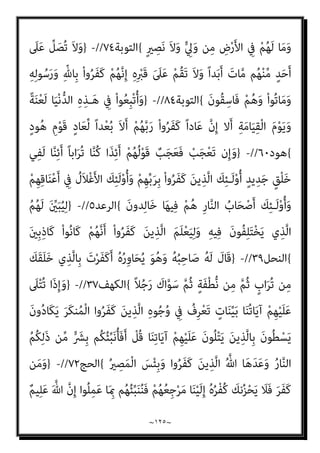 وَمَا لَهُمْ فِي الْأَرْضِ مِن وَلِيٍّ وَلَا نَصِيرٍ ﴾ التوبة٧٤//- ﴿وَلَا تُصَلِّ عَلَى
أَحَدٍ مِّنْهُم مَّاتَ أَبَداً وَلَا تَقُمْ عَلَىَ قَبْرِهِ إِنَّهُمْ كَفَرُواْ بِاللّهِ وَرَسُولِهِ
وَمَاتُواْ وَهُمْ فَاسِقُونَ ﴾ التوبة٨٤//- ﴿وَأُتْبِعُواْ فِي هَـذِهِ الدُّنْيَا لَعْنَةً
وَيَوْمَ الْقِيَامَةِ أَلا إِنَّ عَاداً كَفَرُواْ رَبَّهُمْ أَلاَ بُعْداً لِّعَادٍ قَوْمِ هُودٍ
﴾ هود٦٠//- ﴿وَإِن تَعْجَبْ فَعَجَبٌ قَوْلُهُمْ أَئِذَا كُنَّا تُرَاباً أَئِنَّا لَفِي
خَلْقٍ جَدِيدٍ أُوْلَـئِكَ الَّذِينَ كَفَرُواْ بِرَبِّهِمْ وَأُوْلَئِكَ الأَغْلاَلُ فِي أَعْنَاقِهِمْ
وَأُوْلَـئِكَ أَصْحَابُ النَّارِ هُمْ فِيهَا خَالِدونَ ﴾ الرعد٥//- ﴿لِيُبَيِّنَ لَهُمُ
الَّذِي يَخْتَلِفُونَ فِيهِ وَلِيَعْلَمَ الَّذِينَ كَفَرُواْ أَنَّهُمْ كَانُواْ كَاذِبِينَ
﴾ النحل٣٩//- ﴿قَالَ لَهُ صَاحِبُهُ وَهُوَ يُحَاوِرُهُ أَكَفَرْتَ بِالَّذِي خَلَقَكَ
مِن تُرَابٍ ثُمَّ مِن نُّطْفَةٍ ثُمَّ سَوَّاكَ رَجُلاً ﴾ الكهف٣٧//- ﴿وَإِذَا تُتْلَى
عَلَيْهِمْ آيَاتُنَا بَيِّنَاتٍ تَعْرِفُ فِي وُجُوهِ الَّذِينَ كَفَرُوا الْمُنكَرَ يَكَادُونَ
يَسْطُونَ بِالَّذِينَ يَتْلُونَ عَلَيْهِمْ آيَاتِنَا قُلْ أَفَأُنَبِّئُكُم بِشَرٍّ مِّن ذَلِكُمُ
النَّارُ وَعَدَهَا اللَّهُ الَّذِينَ كَفَرُوا وَبِئْسَ الْمَصِيرُ ﴾ الحج٧٢//- ﴿وَمَن
كَفَرَ فَلَا يَحْزُنكَ كُفْرُهُ إِلَيْنَا مَرْجِعُهُمْ فَنُنَبِّئُهُم بِمَا عَمِلُوا إِنَّ اللَّهَ عَلِيمٌ
~١٢٥~